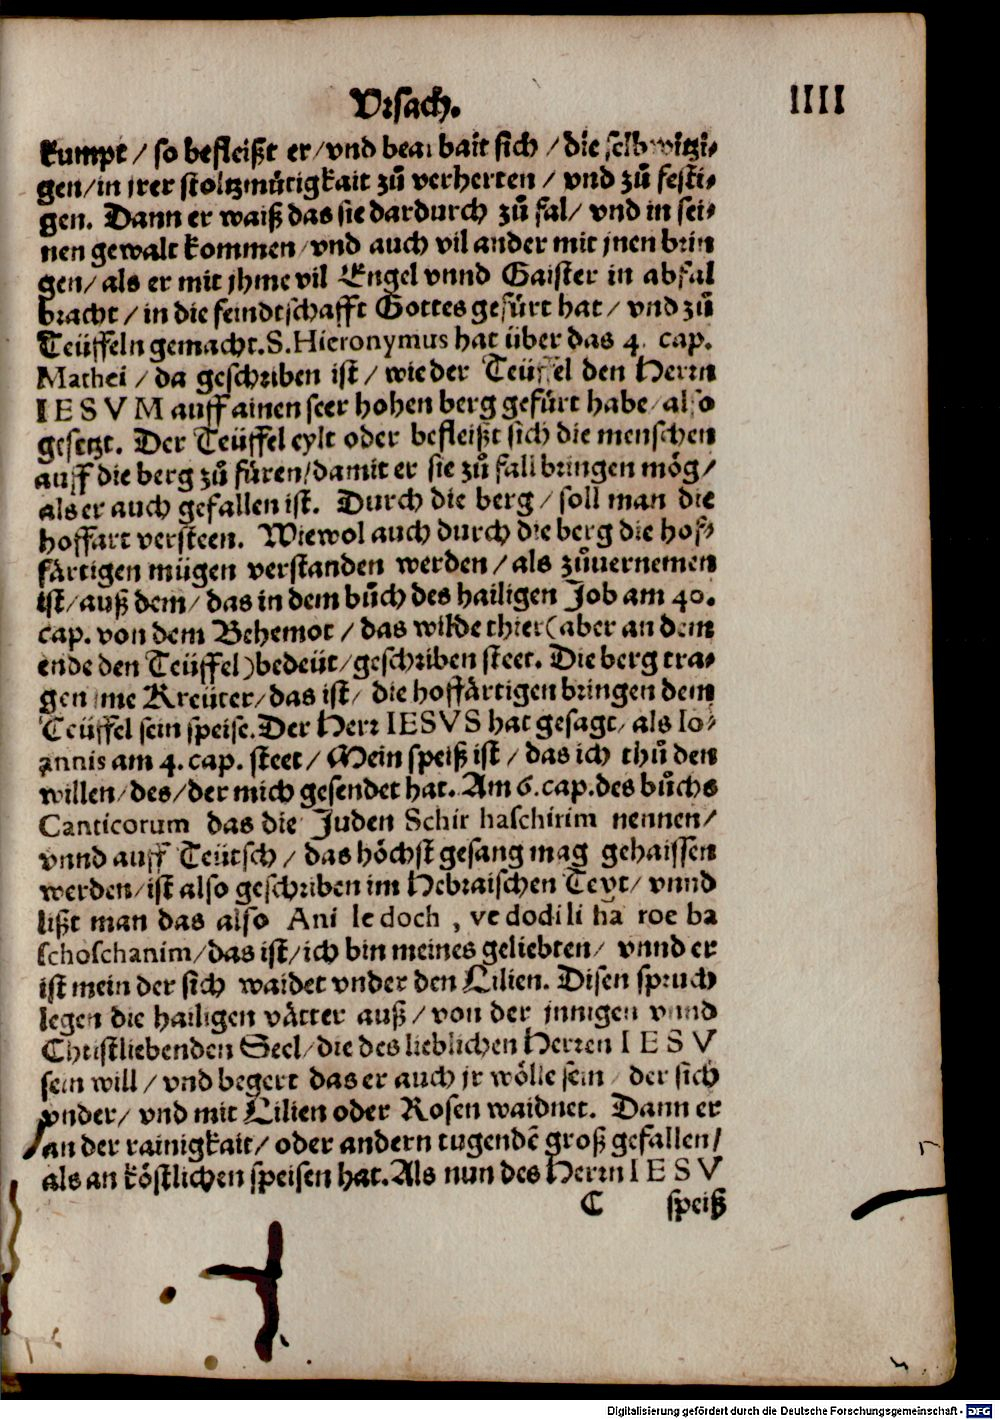 Vrsach. IIII
kumpt / so befleißt er / vnd bearbait sich / die selbwitzi-
gen / in jrer stoltzmütigkait zů verherten / vnd zů festi-
gen. Dann er waiß das sie dardurch zů fal / vnd in sei-
nen gewalt kommen / vnd auch vil ander mit jnen brin
gen / als er mit jhme vil Engel vnnd Gaister in abfal
bracht / in die feindtschafft Gottes gefürt hat / vnd zů
Teüffeln gemacht. S. Hieronymus hat über das 4. cap.
Mathei / da geschriben ist / wie der Teüffel den Herrn
IESVM auff ainen seer hohen berg gefürt habe / also
gesetzt. Der Teüffel eylt oder befleißt sich die menschen
auff die berg zů füren / damit er sie zů fall bringen mög /
als er auch gefallen ist. Durch die berg / soll man die
hoffart versteen. Wiewol auch durch die berg die hof-
färtigen mügen verstanden werden / als zůuernemen
ist / auß dem / das in dem bůch des hailigen Job am 40.
cap. von dem Behemot / das wilde thier (aber an dem
ende den Teüffel) bedeüt / geschriben steet. Die berg tra-
gen jme Kreüter / das ist / die hoffärtigen bringen dem
Teüffel sein speise. Der Herr IESVS hat gesagt / als Io-
annis am 4. cap. steet / Mein speiß ist / das ich thů den
willen / des / der mich gesendet hat. Am 6. cap. des bůchs
Canticorum das die Juden Schir haschirim nennen /
vnnd auff Teütsch / das höchst gesang mag gehaissen
werden / ist also geschriben im Hebraischen Text / vnnd
lißt man das also Ani le doch , ve dodi li ha roe ba
schoschanim / das ist / ich bin meines geliebten / vnnd er
ist mein der sich waidet vnder den Lilien. Disen spruch
legen die hailigen vätter auß / von der jnnigen vnnd
Christliebenden Seel / die des lieblichen Herren IESV
sein will / vnd begert das er auch jr wölle sein / der sich
vnder / vnd mit Lilien oder Rosen waidnet. Dann er
an der rainigkait / oder andern tugendē groß gefallen /
als an köstlichen speisen hat. Als nun des Herrn IESV
C speiß
Digitalisierung gefördert durch die Deutsche Forschungsgemeinschaft - DFG